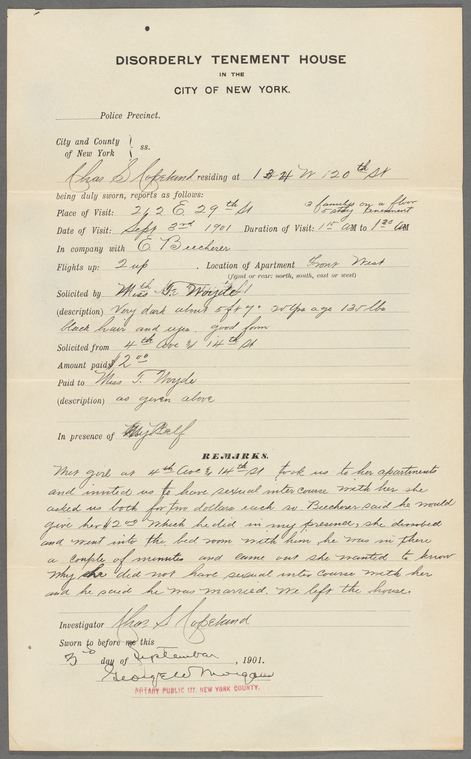 DISORDERLY TENEMENT HOUSE
IN THE
CITY OF NEW YORK.
Police Precinct.
City and County
of New York
ss.
Chas S Copeland residing at 124 W 120th St
being duly sworn, reports as follows:
Place of Visit: 262 E 29th St
3 familys on a floor
5 story tenement
Date of Visit: Sept 3rd 1901 Duration of Visit: 1 15 AM to 1 30 AM
In company with E Beecherer
Flights up: 2 up , Location of Apartment Front West
(front or rear: north, south, east or west)
Solicited by Miss T. Woyde
(description) Very dark about 5 ft 7" age 135 lbs
black hair and eyes good form
Solicited from 4th Ave & 14th St
Amount paid $2 00
Paid to Miss T. Woyde
(description) as given above
In presence of MySelf
REMARKS.
Met girl at 4th Ave & 14th St took us to her apartments
and invited us to have sexual inter course with her she
asked us both for two dollars each so Beecherer said he would
give her $2 00 which he did in my presence, she
and went into the bed room with him he was in there
a couple of minutes and came out she wanted to know
why he did not have sexual inter course with her
and he said he was married. We left the house.
Investigator Chas S Copeland
Sworn to before me this
3rd day of September, 1901.
George W Morgan
NOTARY PUBLIC 177, NEW YORK COUNTY.